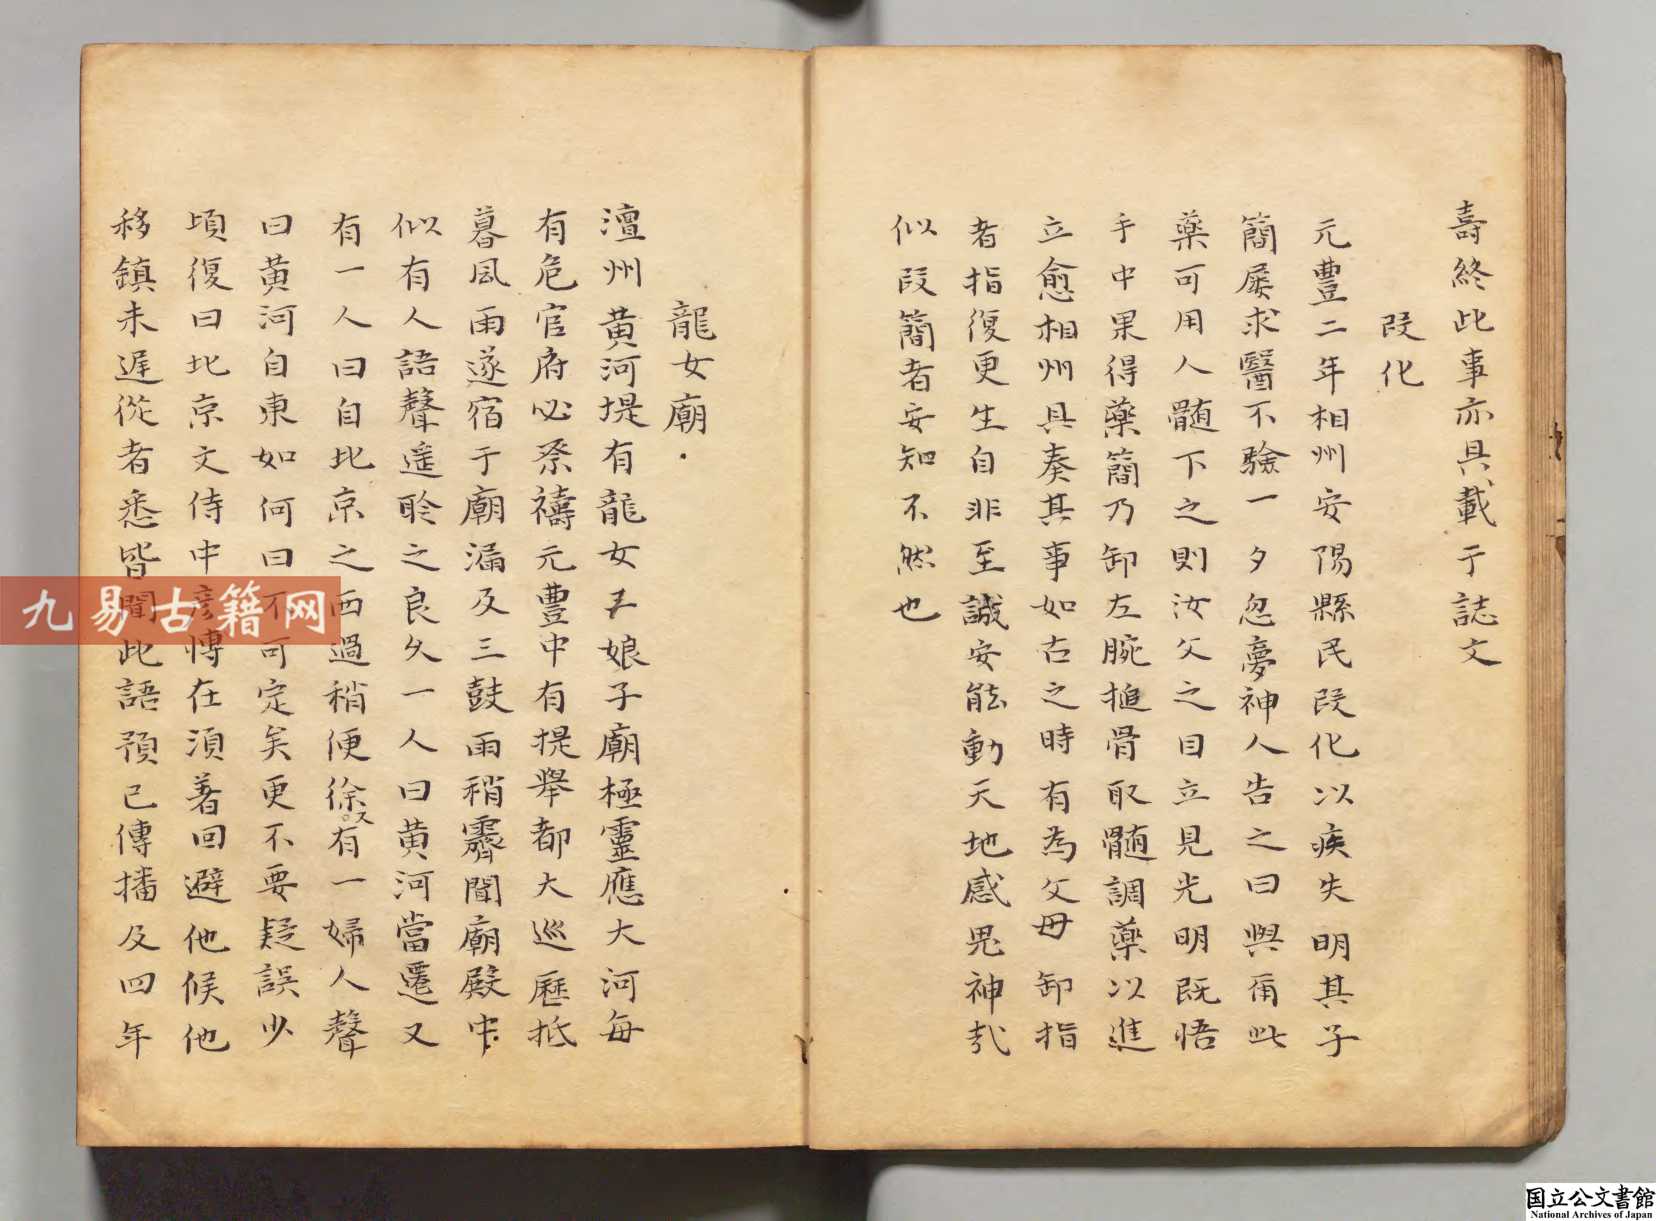 壽終此事亦具載于誌文
段化
元豐二年相州安陽縣民段化以疾失明其子
簡屡求醫不驗一夕忽夢神人告之曰與爾此
藥可用人髓下之則汝父之目立見光明既悟
手中果得藥簡乃卸左腕搥骨取髓調藥以進
立愈相州具奏其事如古之時有為父母卸指
者指復更生自非至誠安能動天地感鬼神哉
似段簡者安知不然也
龍女廟
澶州黄河堤有龍女王娘子廟極靈應大河每
有危官府必祭禱元豐中有提舉都大巡歷抵
暮風雨遂宿于廟漏及三鼓雨稍霽聞廟殿中
似有人語聲遥聆之良久一人曰黄河當遷又
有一人曰自北京之西過稍便徐又有一婦人聲
曰黄河自東如何曰不可定矣更不要疑誤少
頃復曰北京文侍中彦博在須著回避他候他
移鎮未遲從者悉皆聞此語預已傳播及四年
九易古籍网
国立公文書館
National Archives of Japan